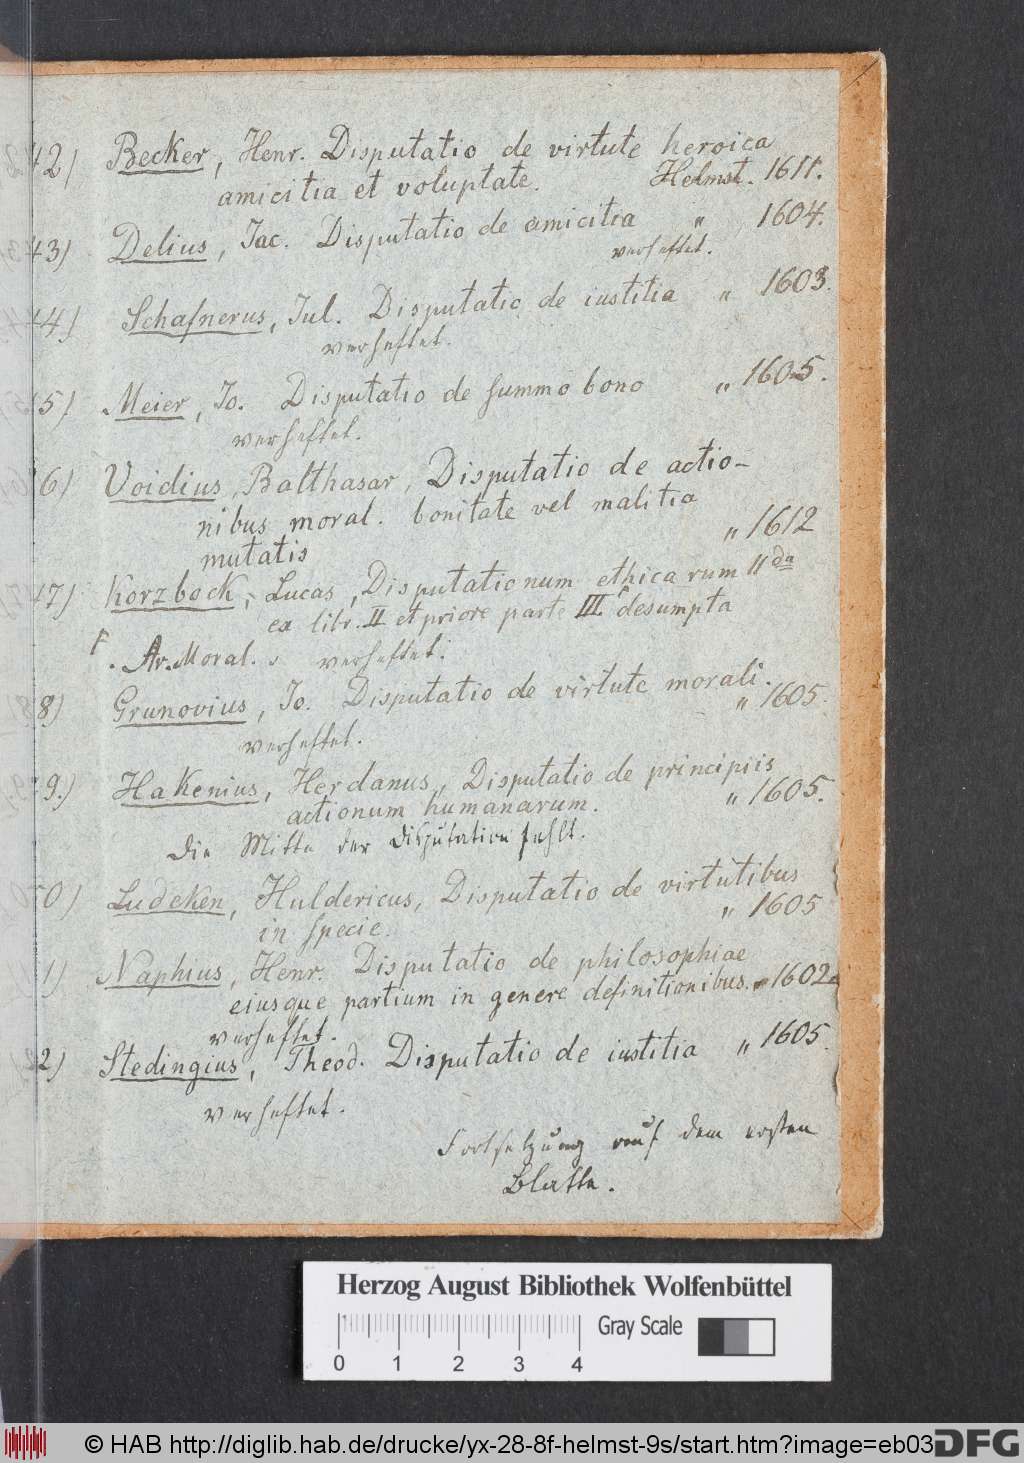 42) Becker, Henr. Disputatio de virtute heroica
amicitia et voluptate. Helmst. 1611.
43) Delius, Jac. Disputatio de amicitia " 1604.
verheftet.
44) Schafnerus, Jul. Disputatio de iustitia " 1603.
verheftet.
5) Meier, Jo. Disputatio de summo bono " 1605.
verheftet.
6) Voidius, Balthasar, Disputatio de actio-
nibus moral. bonitate vel malitia
mutatis " 1612
47) Korzbock, Lucas, Disputationum ethicarum 11da
ex libr. II et priore parte III. desumpta
Ar. Moral. verheftet.
8) Grunovius, Jo. Disputatio de virtute morali.
" 1605.
verheftet.
9.) Hakenius, Herdanus, Disputatio de principiis
actionum humanarum. " 1605.
Die Mitte der Disputation fehlt.
50) Ludeken, Huldericus, Disputatio de virtutibus
in specie. " 1605
1) Naphius, Henr. Disputatio de philosophiae
eiusque partium in genere definitionibus. " 1602
verheftet.
2) Stedingius, Theod. Disputatio de iustitia " 1605.
verheftet.
Fortsetzung auf dem ersten
Blatte.
Herzog August Bibliothek Wolfenbüttel
Gray Scale
0 1 2 3 4
© HAB http://diglib.hab.de/drucke/yx-28-8f-helmst-9s/start.htm?image=eb03
DFG